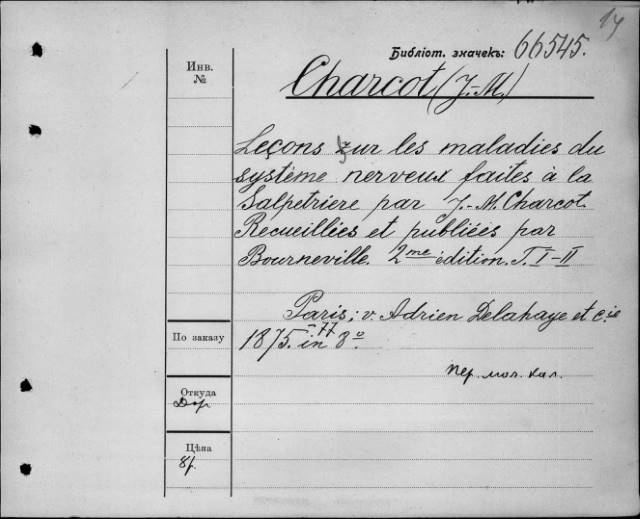 14
Библіот. значекъ: 66545.
Инв.
№
Charcot (J.-M.)
Leçons sur les maladies du
système nerveux faites à la
Salpetriere par J.-M. Charcot.
Recueillies et publiées par
Bourneville. 2me edition. T. I-II
Paris; v. Adrien Delahaye et c.ie
1875.-77 in 8o.
По заказу
Пер. мол. кал.
Откуда
Дар
Цѣна
8р.